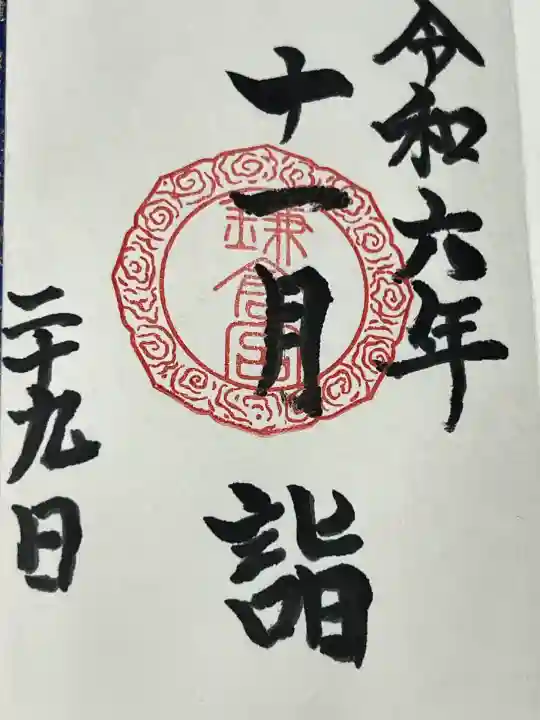 令和六年
十一月
詣
二十九日
鎌倉宮